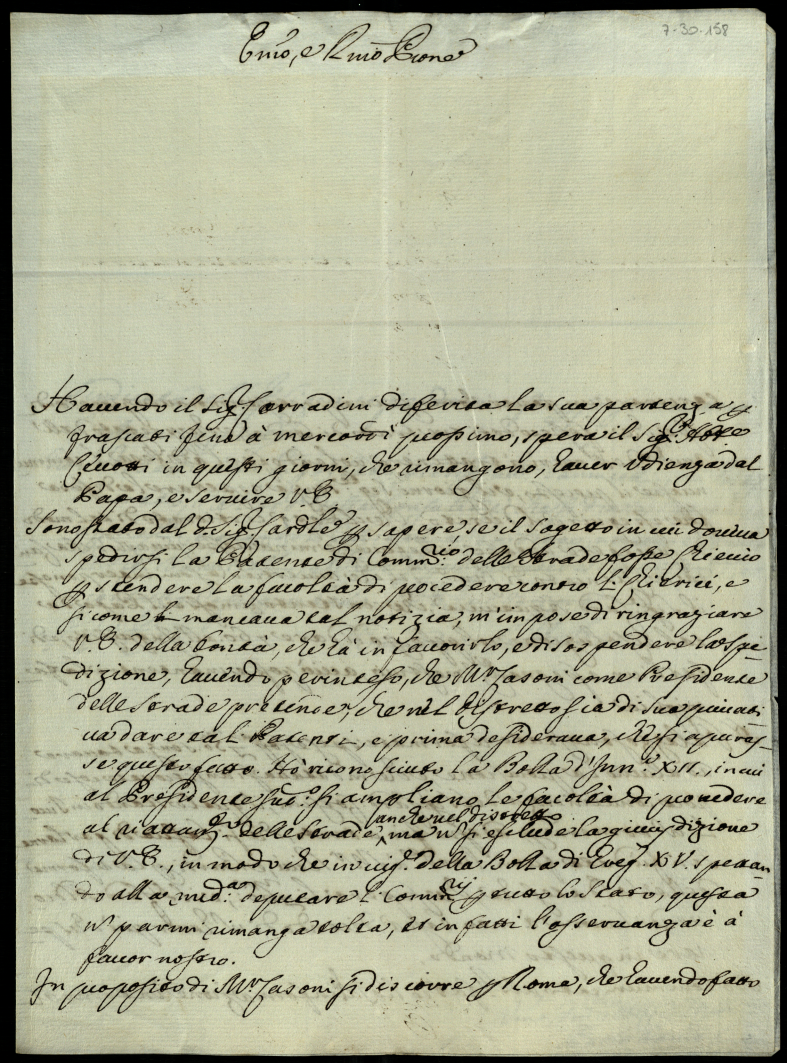 7-30-158
Emo, e Rmo Prone
Havendo il Sigr Corradini diferita la sua partenza p
frascati fino à mercordì prossimo, spera il Sigr
Cinotti in questi giorni, che rimangono, haver Udienza dal
Papa, e servire V.E.
Sono stato dal d. Sigr Cardle p sapere se il sogetto in cui doveva
spedirsi la Patente di Commrio delle strade fosse Chierico
p stendere la facoltà di procedere contro li Chierici, e
sicome li mancava tal notizia, m'impose di ringraziare
V.E. della bontà, che hà in favorirlo, e di sospendere la spe-
dizione, havendo per inteso, che Mr Casoni come Presidente
delle strade pretende, che nel distretto sia di sua privati-
va dare tali Patenti, e prima desiderava, che si apuras-
se questo fatto. Hò riconosciuto la Bolla d'Inno. XII., in cui
al Presidente sud.o si ampliano le facoltà di provedere
al riattamto delle strade anche nel distretto, ma n si esclude la giurisdizione
di V.E., in modo che in vigre della Bolla di Greg. XV. spettan-
do alla med.a deputare li Commrij p tutto lo Stato, questa
n parmi rimanga tolta, et in fatti l'osservanza è à
favor nostro.
In proposito di Mr Casoni si discorre p Roma, che havendo fatto